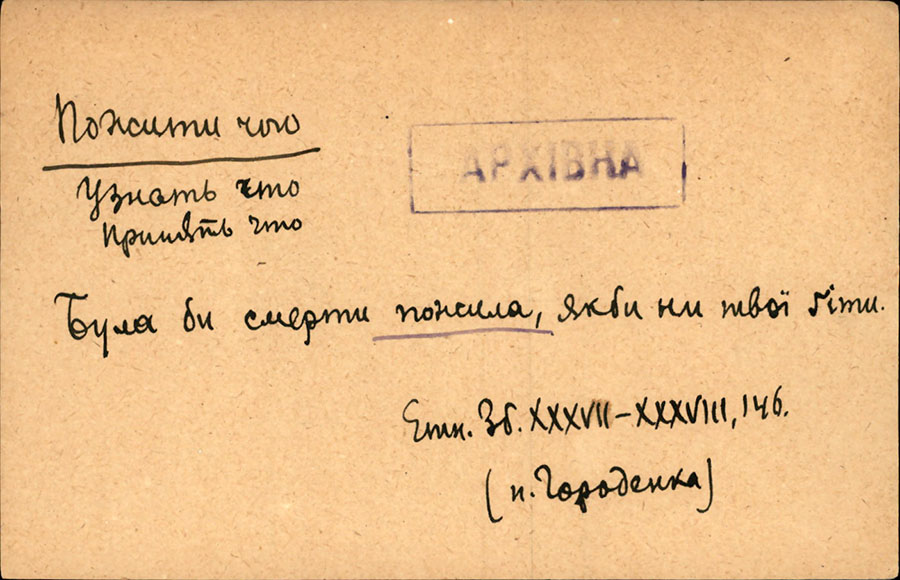 Пожити чого
АРХІВНА
Узнать что
Принять что
Була би смерти пожила, якби ни твої ґіти.
Етн. Зб. XXXVII–XXXVIII, 146.
(п. Городенка)